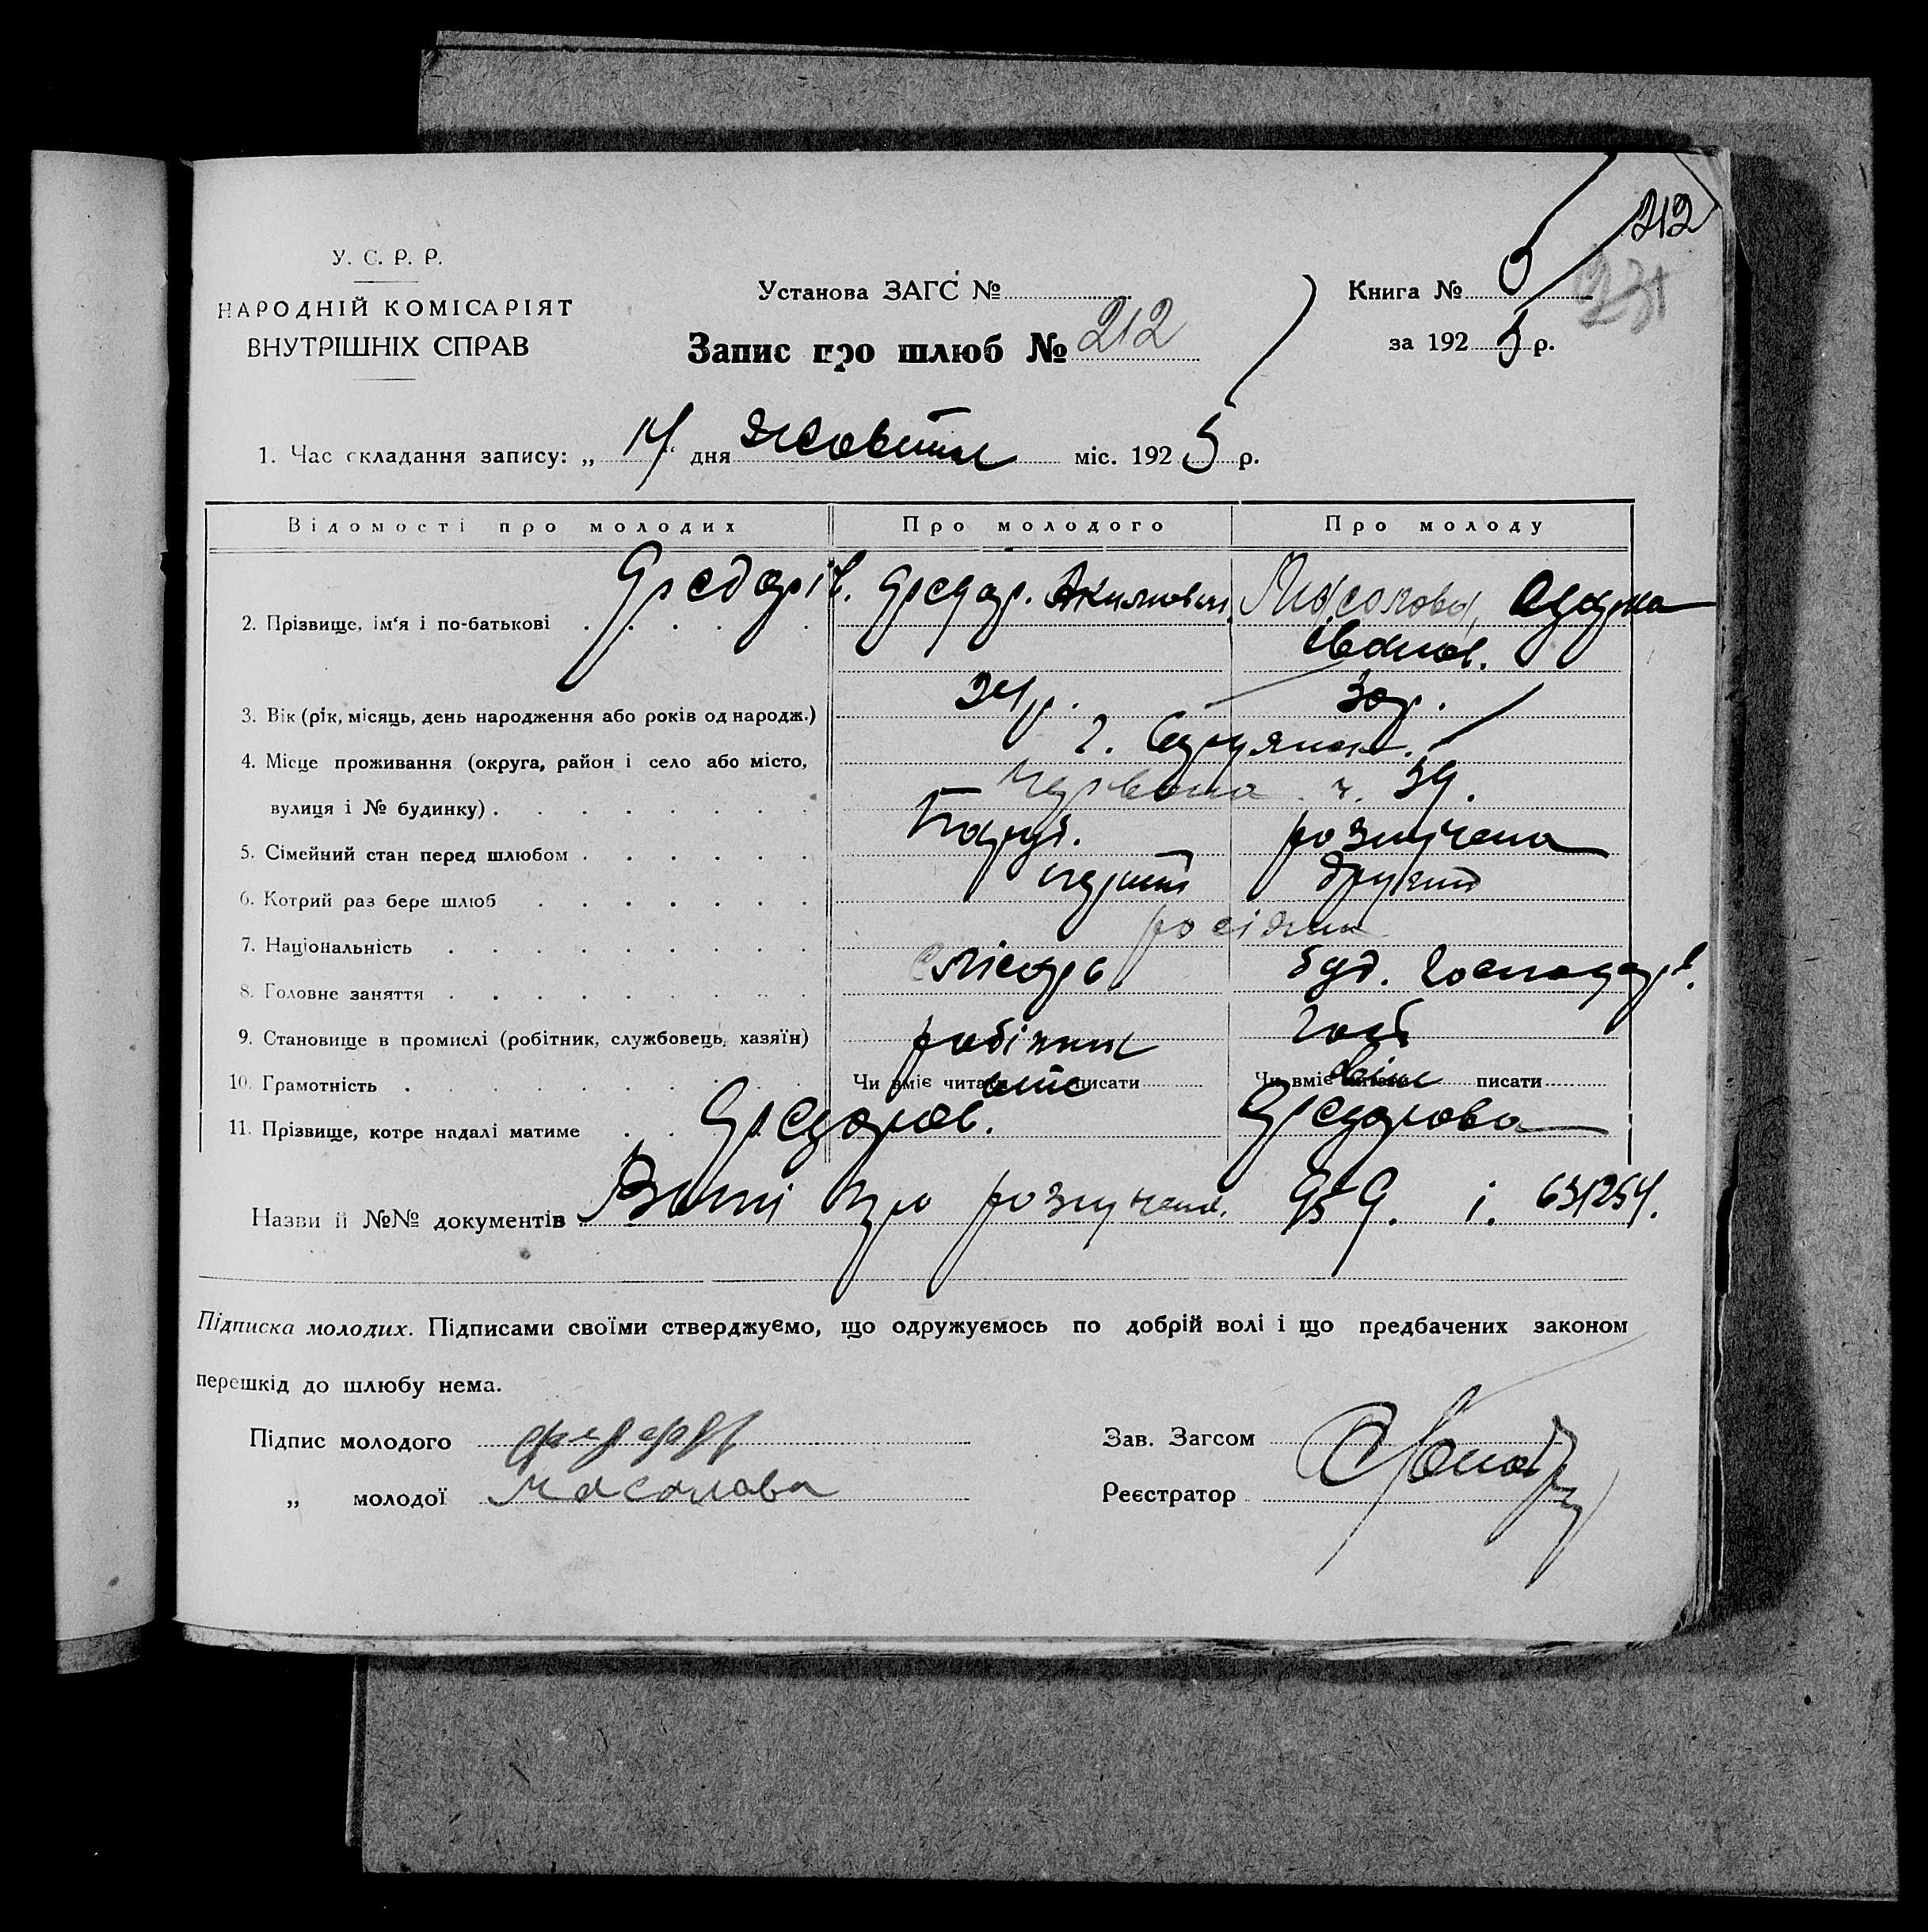 212
231
У. С. Р. Р.
НАРОДНІЙ КОМІСАРІЯТ
ВНУТРІШНІХ СПРАВ
Установа ЗАГС №
Книга №
Запис про шлюб № 212
за 192 5 р.
1. Час складання запису: „ “ дня жовтня міс. 192 5 р.
Відомості про молодих Про молодого Про молоду
2. Прізвище, ім'я і по-батькові Федорів. Федор. Акимович Масолова,
Іванов.
3. Вік (рік, місяць, день народження або років од народж.) 24 р. 30 р.
4. Місце проживання (округа, район і село або місто,
вулиця і № будинку) Червона ч. 39.
5. Сімейний стан перед шлюбом Паруб. розлучена
6. Котрий раз бере шлюб перший другий
7. Національність
8. Головне заняття слюсарь
9. Становище в промислі (робітник, службовець, хазяїн) робітник
10. Грамотність Чи вміє читати писати Чи вміє читати писати
11. Прізвище, котре надалі матиме Федоров. Федорова
Назви й №№ документів про розлучення. 959. і. 631254.
Підписка молодих. Підписами своїми стверджуємо, що одружуємось по добрій волі і що предбачених законом
перешкід до шлюбу нема.
Підпис молодого
Зав. Загсом
„ молодої Масолова
Реєстратор